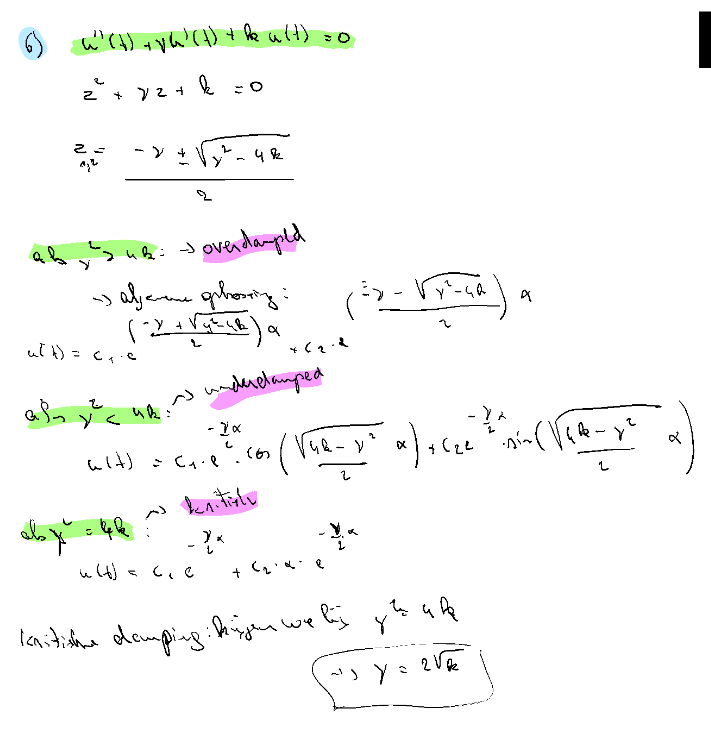 6) u''(t) + γu'(t) + k u(t) = 0
z² + γz + k = 0
z₁,₂ = (-γ ± √(γ² - 4k)) / 2
als γ² > 4k: → overdampd
→ algemene oplossing:
u(t) = c₁·e^((-γ + √(γ²-4k))/2)α + c₂·e^((-γ - √(γ²-4k))/2)α
als γ² < 4k: → underdamped
u(t) = c₁·e^(-γ/2 α)·cos(√(4k-γ²)/2 α) + c₂e^(-γ/2 α)·sin(√(4k-γ²)/2 α)
als γ² = 4k: → kritisch
u(t) = c₁e^(-γ/2 α) + c₂·α·e^(-γ/2 α)
kritische damping: krijgen we bij γ² = 4k
→ γ = 2√k